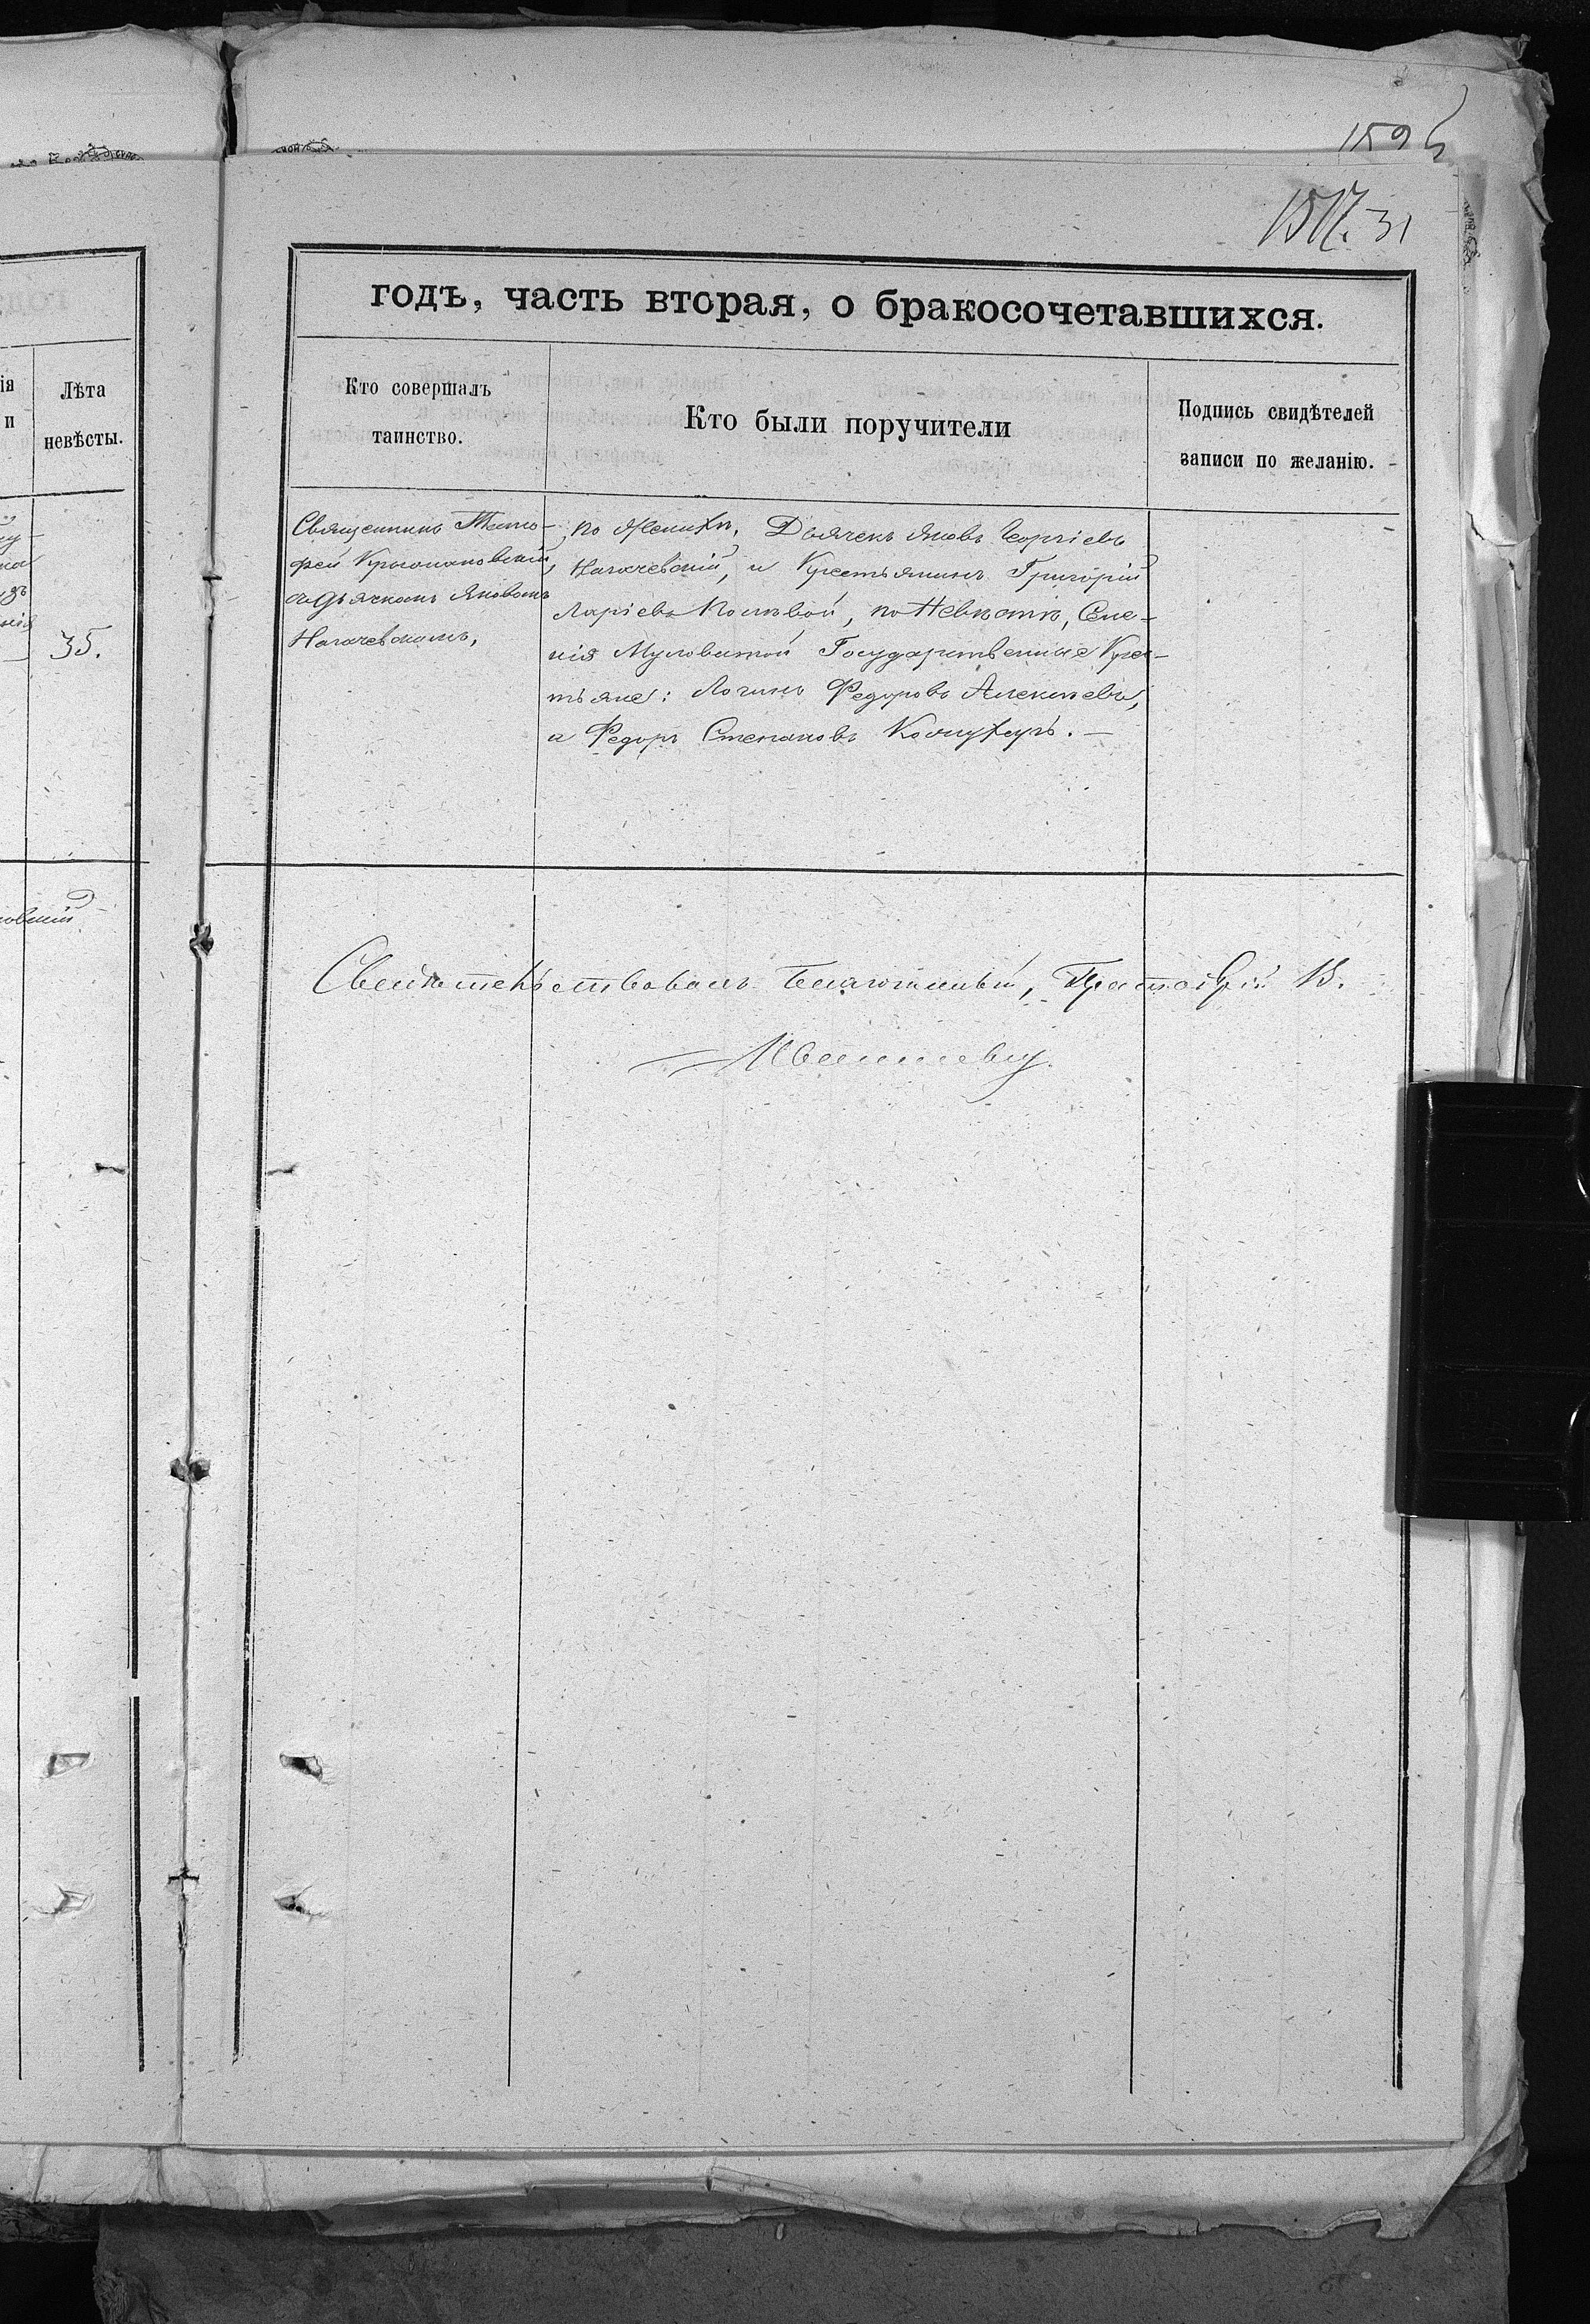 1595
1517. 31
годъ, часть вторая, о бракосочетавшихся.
Лѣта
невѣсты.
Кто совершалъ
таинство.
Кто были поручители
Подпись свидѣтелей
записи по желанію.
35.
Священникъ Тимо-
фей Крыжановскій,
съ дьячкомъ Яковомъ
Нагачевскимъ,
По Женихѣ, Дьячекъ Яковъ Георгіевъ
Нагачевскій, и Крестьянинъ Григорій
по Невѣстѣ, Семе-
нія Государственные Крес-
тьяне: Логинъ Федоровъ Алексѣевъ,
и Федоръ Степановъ Кожухарь. —
Свидѣтельствовалъ Благочинный, Протоіерей В.